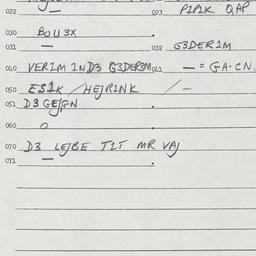 022 — 023 PIPIK QAP
030 BOU3X
031 — 032 G3DERIM
040 VERIM IND3 G3DERSM 041 — = GA·CN
050 ESIK / HEJRINK / —
051 D3 GEJGN
060 O
070 D3 LEJBE TIT MR VAJ
071 —